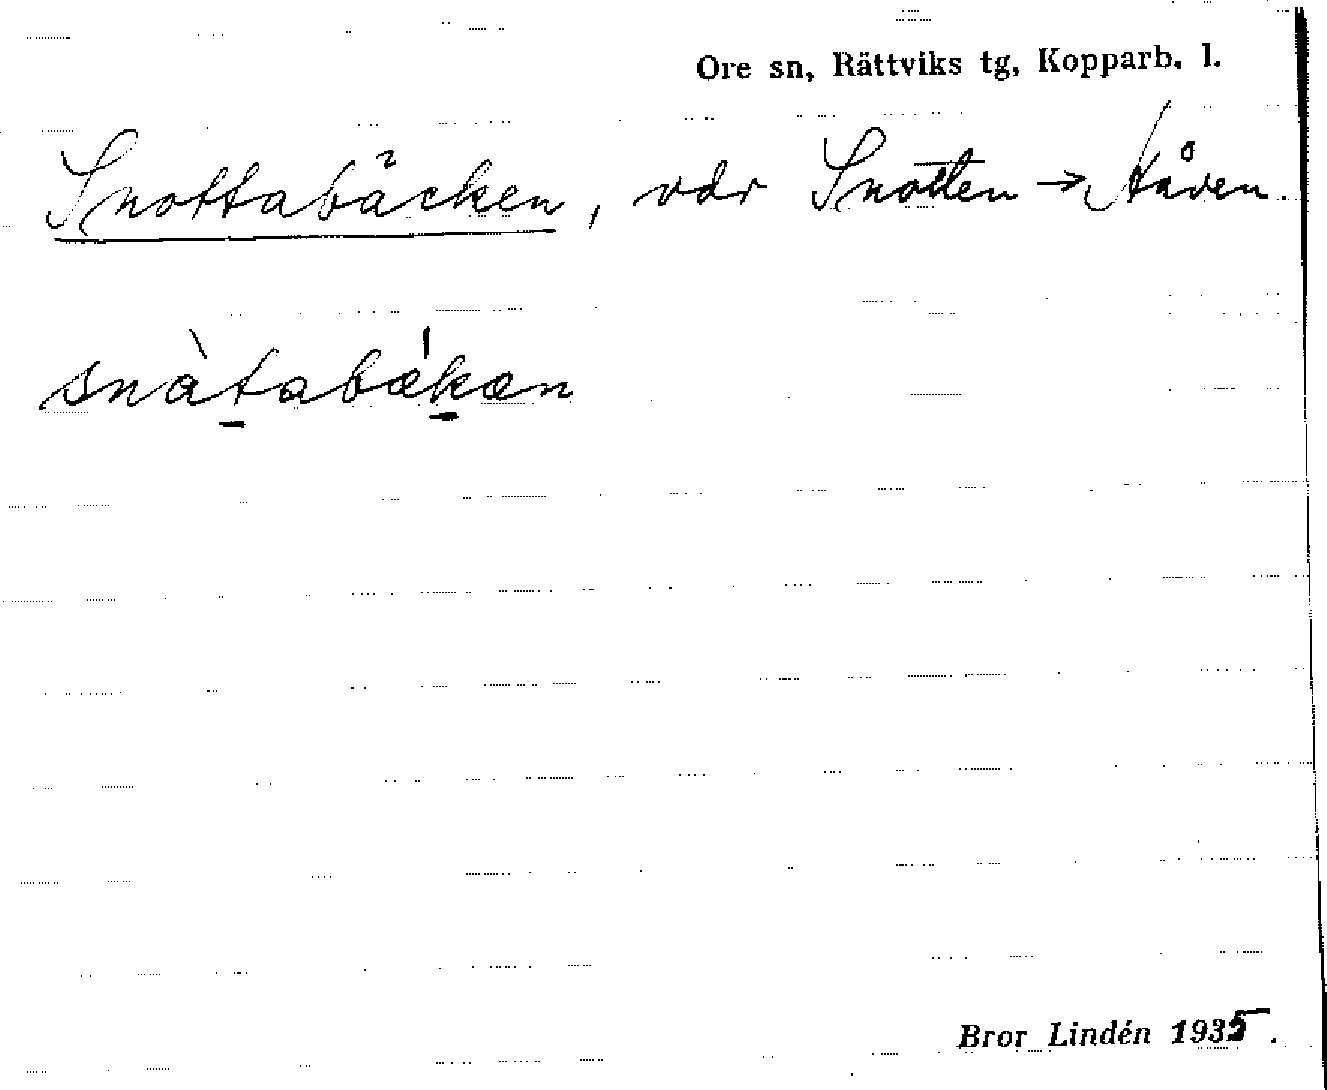 Ore sn, Rättviks tg, Kopparb. l.
Snottabäcken, vdr Snotten → Håven.
snàtabǽkæn
Bror Lindén 1935.